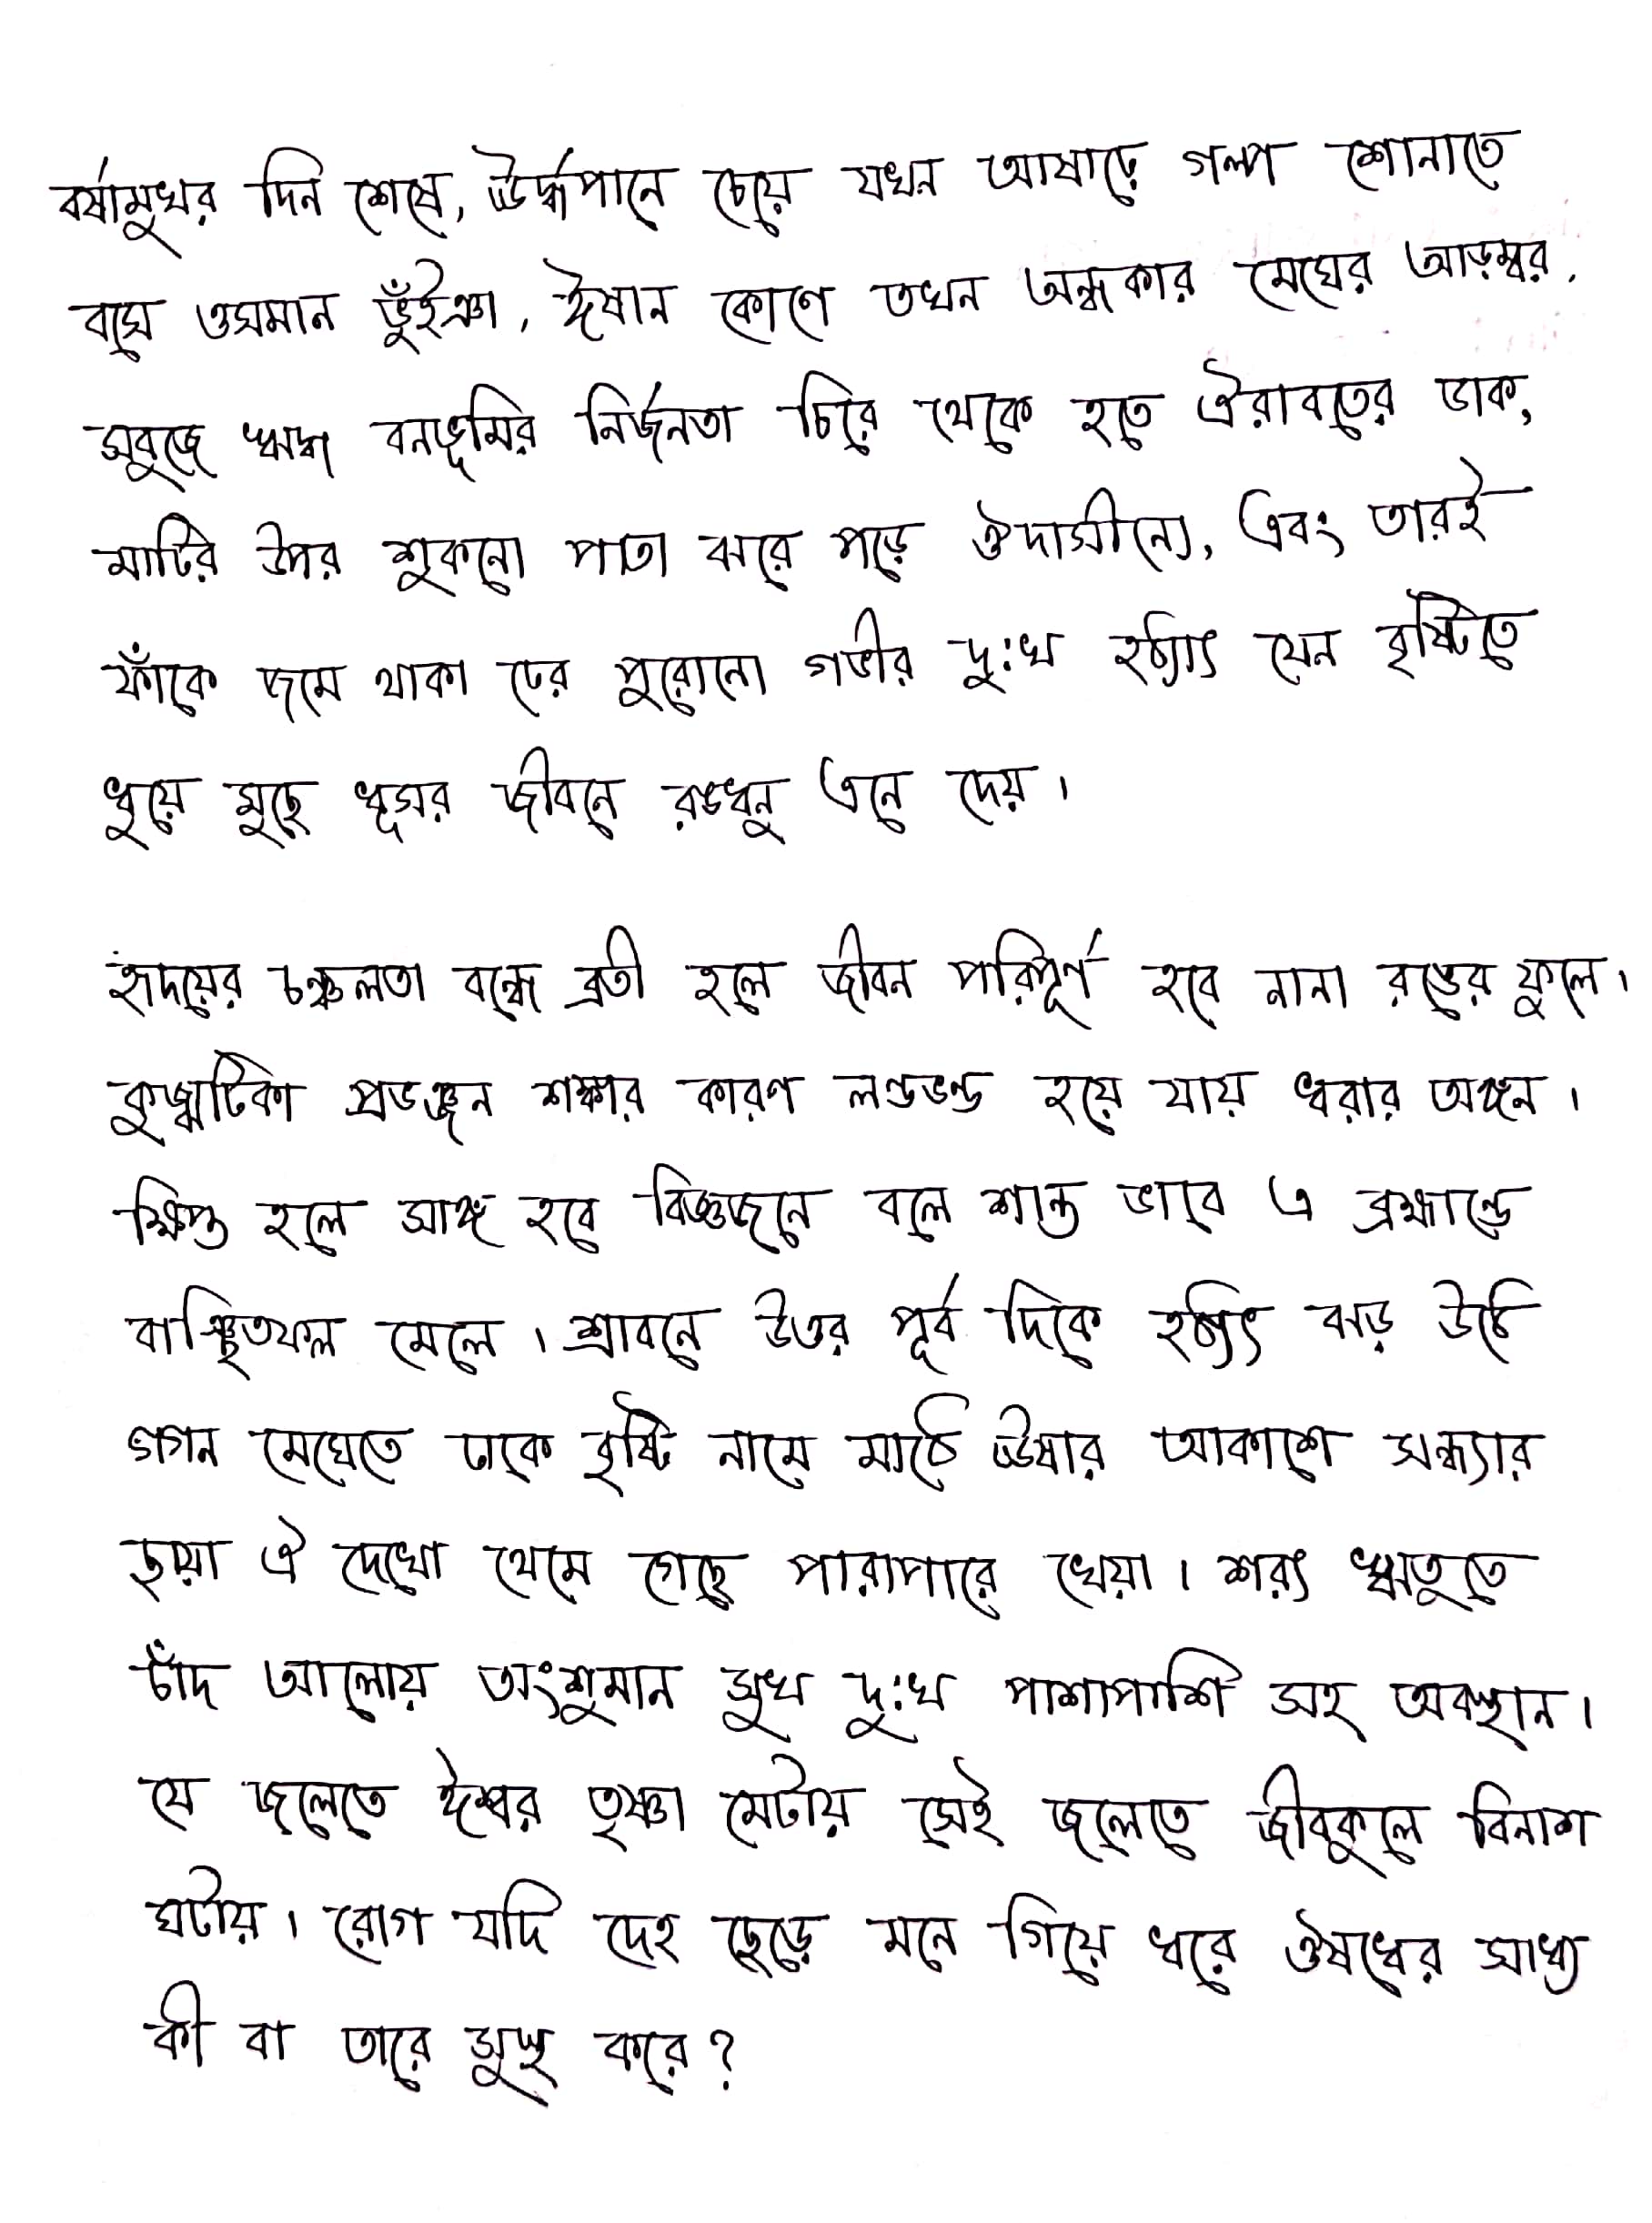 বর্ষামুখর দিন শেষে, ঊর্দ্ধপানে চেয়ে যখন আষাঢ়ে গল্প শোনাতে
বসে ওসমান ভুঁইঞা, ঈষান কোণে তখন অন্ধকার মেঘের আড়ম্বর,
সবুজে ঋদ্ধ বনভূমির নির্জনতা চিরে থেকে হতে ঐরাবতের ডাক,
মাটির উপর শুকনো পাতা ঝরে পড়ে ঔদাসীন্যে, এবং তারই
ফাঁকে জমে থাকা ঢের পুরোনো গভীর দু:খ হঠাৎ যেন বৃষ্টিতে
ধুয়ে মুছে ধূসর জীবনে রঙধনু এনে দেয়।
হৃদয়ের চঞ্চলতা বন্ধে ব্রতী হলে জীবন পরিপূর্ণ হবে নানা রঙের ফুলে।
কুজ্ঝটিকা প্রভঞ্জন শঙ্কার কারণ লণ্ডভণ্ড হয়ে যায় ধরার অঙ্গন।
ক্ষিপ্ত হলে সাঙ্গ হবে বিজ্ঞজনে বলে শান্ত ভাবে এ ব্রহ্মাণ্ডে
বাঞ্ছিতফল মেলে। শ্রাবনে উত্তর পূর্ব দিকে হঠাৎ ঝড় উঠে
গগন মেঘেতে ঢাকে বৃষ্টি নামে মাঠে ঊষার আকাশে সন্ধ্যার
ছায়া ঐ দেখো থেমে গেছে পারাপারে খেয়া। শরৎ ঋতুতে
চাঁদ আলোয় অংশুমান সুখ দু:খ পাশাপাশি সহ অবস্থান।
যে জলেতে ঈশ্বর তৃষ্ণা মেটায় সেই জলেতে জীবকুলে বিনাশ
ঘটায়। রোগ যদি দেহ ছেড়ে মনে গিয়ে ধরে ঔষধের সাধ্য
কী বা তারে সুস্থ করে?